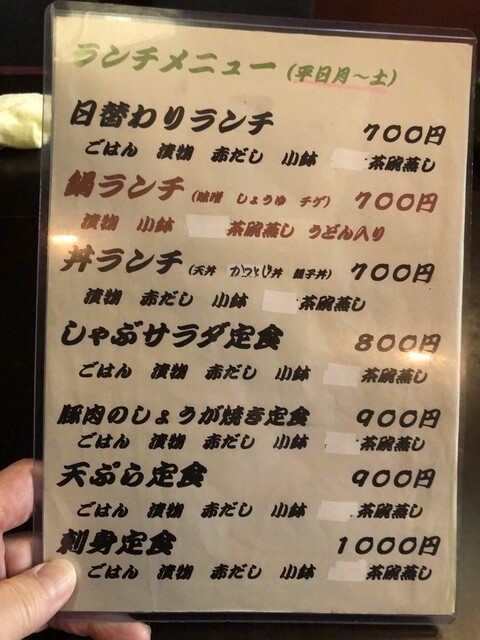 ランチメニュー (平日月〜土)
日替わりランチ 700円
ごはん 漬物 赤だし 小鉢 茶碗蒸し
鍋ランチ (味噌 しょうゆ チゲ) 700円
漬物 小鉢 茶碗蒸し うどん入り
丼ランチ (天丼 かつとじ丼 親子丼) 700円
漬物 赤だし 小鉢 茶碗蒸し
しゃぶサラダ定食 800円
ごはん 漬物 赤だし 小鉢 茶碗蒸し
豚肉のしょうが焼き定食 900円
ごはん 漬物 赤だし 小鉢 茶碗蒸し
天ぷら定食 900円
ごはん 漬物 赤だし 小鉢 茶碗蒸し
刺身定食 1000円
ごはん 漬物 赤だし 小鉢 茶碗蒸し